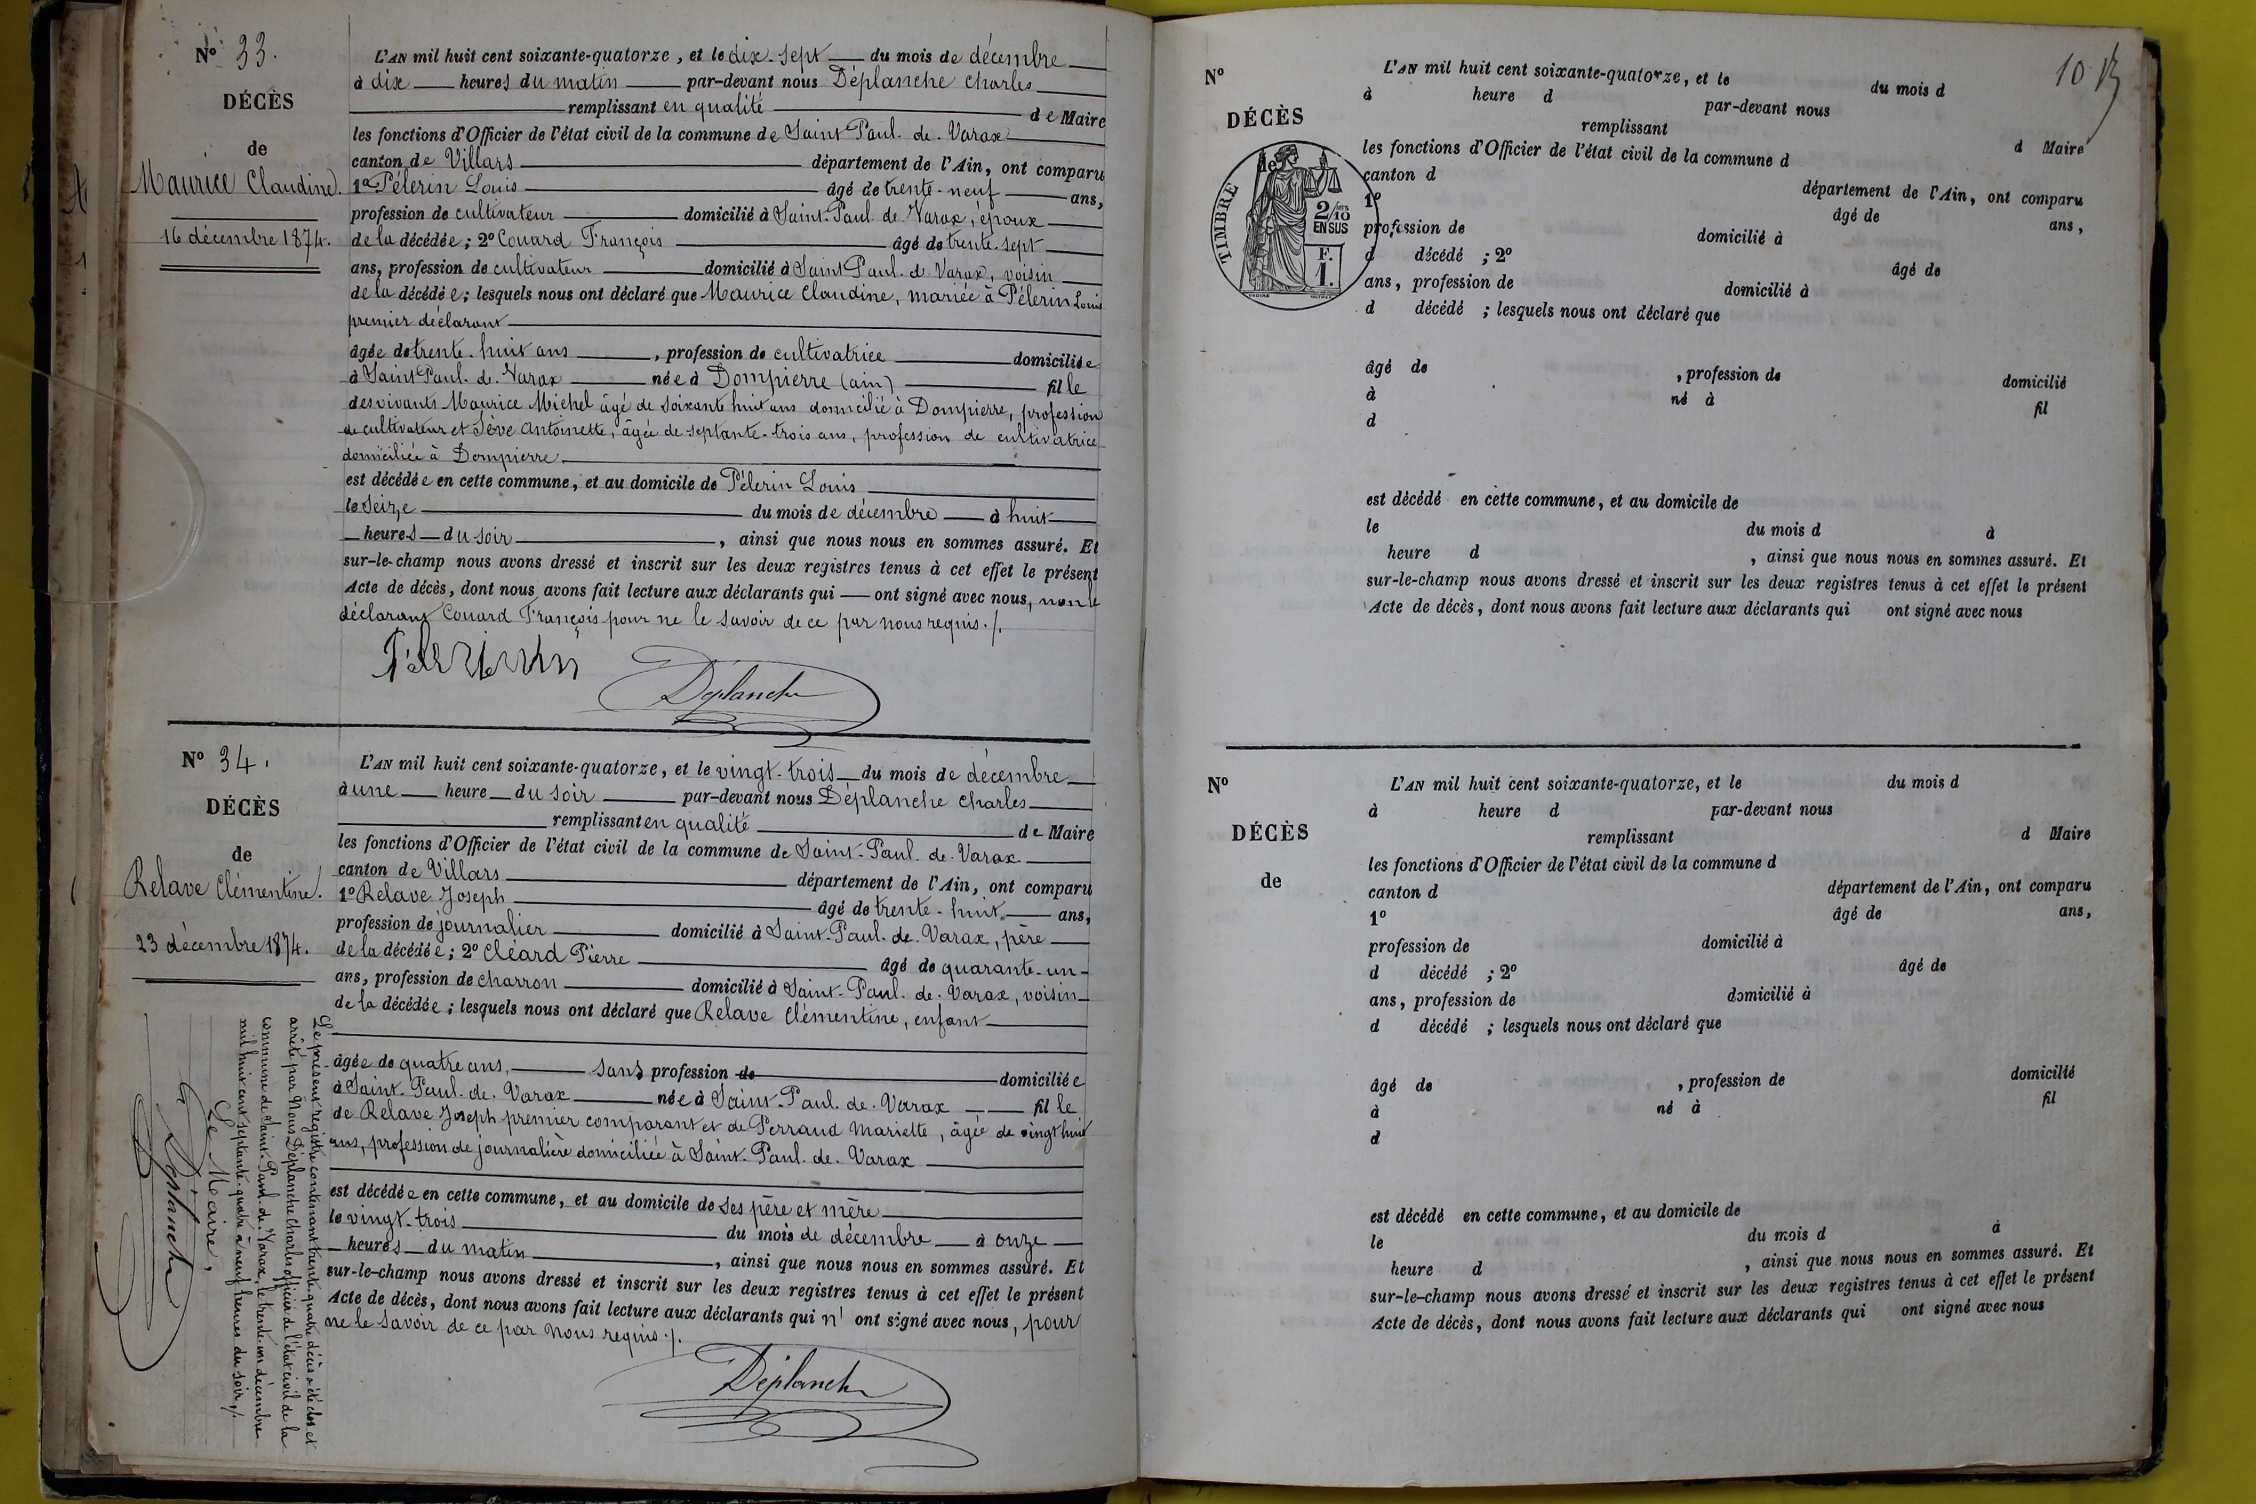 N° 33.
DÉCÈS
de
Maurice Claudine.
16 décembre 1874.
L'AN mil huit cent soixante-quatorze, et le dix-sept du mois de décembre
à dix heures du matin par-devant nous Déplanche Charles
remplissant en qualité de Maire
les fonctions d'Officier de l'état civil de la commune de Saint-Paul-de-Varax
canton de Villars département de l'Ain, ont comparu
1° Pélerin Louis âgé de trente-neuf ans,
profession de cultivateur domicilié à Saint-Paul-de-Varax, époux
de la décédée; 2° Couard François âgé de trente-sept
ans, profession de cultivateur domicilié à Saint Paul-de-Varax, voisin
de la décédée; lesquels nous ont déclaré que Maurice Claudine, mariée à Pélerin Louis
premier déclarant
âgée de trente-huit ans, profession de cultivatrice domiciliée
à Saint Paul-de-Varax née à Dompierre (ain) fille
des vivants Maurice Michel âgé de soixante huit ans domicilié à Dompierre, profession
de cultivateur et Sève Antoinette, âgée de septante-trois ans, profession de cultivatrice
domiciliée à Dompierre
est décédée en cette commune, et au domicile de Pélerin Louis
le seize du mois de décembre à huit
heures du soir, ainsi que nous nous en sommes assuré. Et
sur-le-champ nous avons dressé et inscrit sur les deux registres tenus à cet effet le présent
Acte de décès, dont nous avons fait lecture aux déclarants qui ont signé avec nous, non le
déclarant Couard François pour ne le savoir de ce par nous requis./.
Déplanche
N° 34.
DÉCÈS
de
Relave Clémentine.
23 décembre 1874.
L'AN mil huit cent soixante-quatorze, et le vingt-trois du mois de décembre
à une heure du soir par-devant nous Déplanche Charles
remplissant en qualité de Maire
les fonctions d'Officier de l'état civil de la commune de Saint-Paul-de-Varax
canton de Villars département de l'Ain, ont comparu
1° Relave Joseph âgé de trente-huit ans,
profession de journalier domicilié à Saint-Paul-de-Varax, père
de la décédée; 2° Cléard Pierre âgé de quarante-un
ans, profession de charron domicilié à Saint-Paul-de-Varax, voisin
de la décédée; lesquels nous ont déclaré que Relave Clémentine, enfant
âgée de quatre ans, sans profession de domiciliée
à Saint-Paul-de-Varax née à Saint-Paul-de-Varax fille
de Relave Joseph premier comparant et de Perraud Mariette, âgée de vingt huit
ans, profession de journalière domiciliée à Saint-Paul-de-Varax
est décédée en cette commune, et au domicile de ses père et mère
le vingt-trois du mois de décembre à onze
heures du matin, ainsi que nous nous en sommes assuré. Et
sur-le-champ nous avons dressé et inscrit sur les deux registres tenus à cet effet le présent
Acte de décès, dont nous avons fait lecture aux déclarants qui n' ont signé avec nous, pour
ne le savoir de ce par nous requis./.
Déplanche
Le présent registre contenant trente-quatre décès a été clos et
arrêté par Nous Déplanche Charles officier de l'état civil de la
commune de Saint-Paul-de-Varax, le trente-un décembre
mil huit cent septante-quatre à neuf heures du soir./.
Le Maire,
Déplanche
10
N°
DÉCÈS
de
TIMBRE
2/10
EN SUS
F.
1.
L'AN mil huit cent soixante-quatorze, et le du mois d
à heure d par-devant nous
remplissant d Maire
les fonctions d'Officier de l'état civil de la commune d
canton d département de l'Ain, ont comparu
1° âgé de ans,
profession de domicilié à
d décédé ; 2° âgé de
ans, profession de domicilié à
d décédé ; lesquels nous ont déclaré que
âgé de , profession de domicilié
à né à fil
d
est décédé en cette commune, et au domicile de
le du mois d à
heure d , ainsi que nous nous en sommes assuré. Et
sur-le-champ nous avons dressé et inscrit sur les deux registres tenus à cet effet le présent
Acte de décès, dont nous avons fait lecture aux déclarants qui ont signé avec nous
N°
DÉCÈS
de
L'AN mil huit cent soixante-quatorze, et le du mois d
à heure d par-devant nous
remplissant d Maire
les fonctions d'Officier de l'état civil de la commune d
canton d département de l'Ain, ont comparu
1° âgé de ans,
profession de domicilié à
d décédé ; 2° âgé de
ans, profession de domicilié à
d décédé ; lesquels nous ont déclaré que
âgé de , profession de domicilié
à né à fil
d
est décédé en cette commune, et au domicile de
le du mois d à
heure d , ainsi que nous nous en sommes assuré. Et
sur-le-champ nous avons dressé et inscrit sur les deux registres tenus à cet effet le présent
Acte de décès, dont nous avons fait lecture aux déclarants qui ont signé avec nous